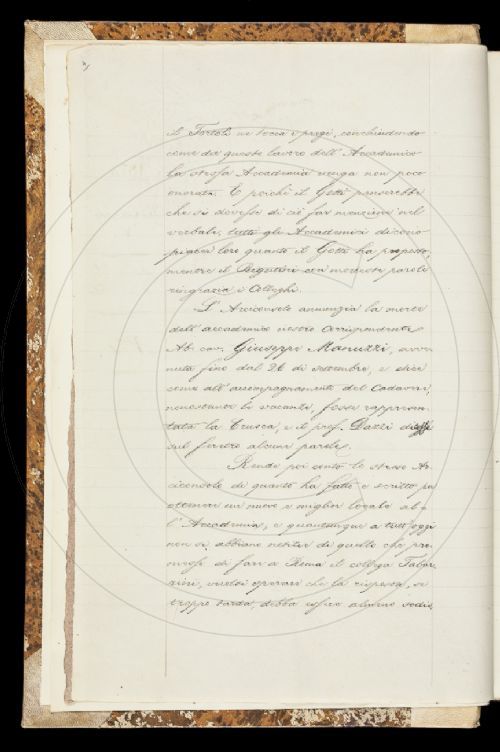 il Tortoli ne tocca i pregi, conchiudendo
come da questo lavoro dell'Accademico
la stessa Accademia venga non poco
onorata. E poichè il Gotti penserebbe
che si dovesse di ciò far menzione nel
verbale, tutti gli Accademici dicono
piacer loro quanto il Gotti ha proposto,
mentre il con modeste parole
ringrazia i Colleghi.
L'Arciconsolo annunzia la morte
dell'accademico nostro corrispondente
Ab. cav. Giuseppe Manuzzi, avve-
nuta fino dal 26 di settembre, e dice
come all'accompagnamento del cadavere,
nonostante le vacanze, fosse rappresen-
tata la Crusca, e il prof. Dazzi dicesse
sul feretro alcune parole.
Rende poi conto lo stesso Ar-
ciconsolo di quanto ha fatto e scritto per
ottenere un nuovo e miglior locale al-
l'Accademia, e quantunque a tutt'oggi
non si abbiano notizie di quello che pro-
mise di fare a Roma il collega Tabar-
rini, vuolsi sperare che la risposta, se
troppo tarda, debba essere almeno sodis